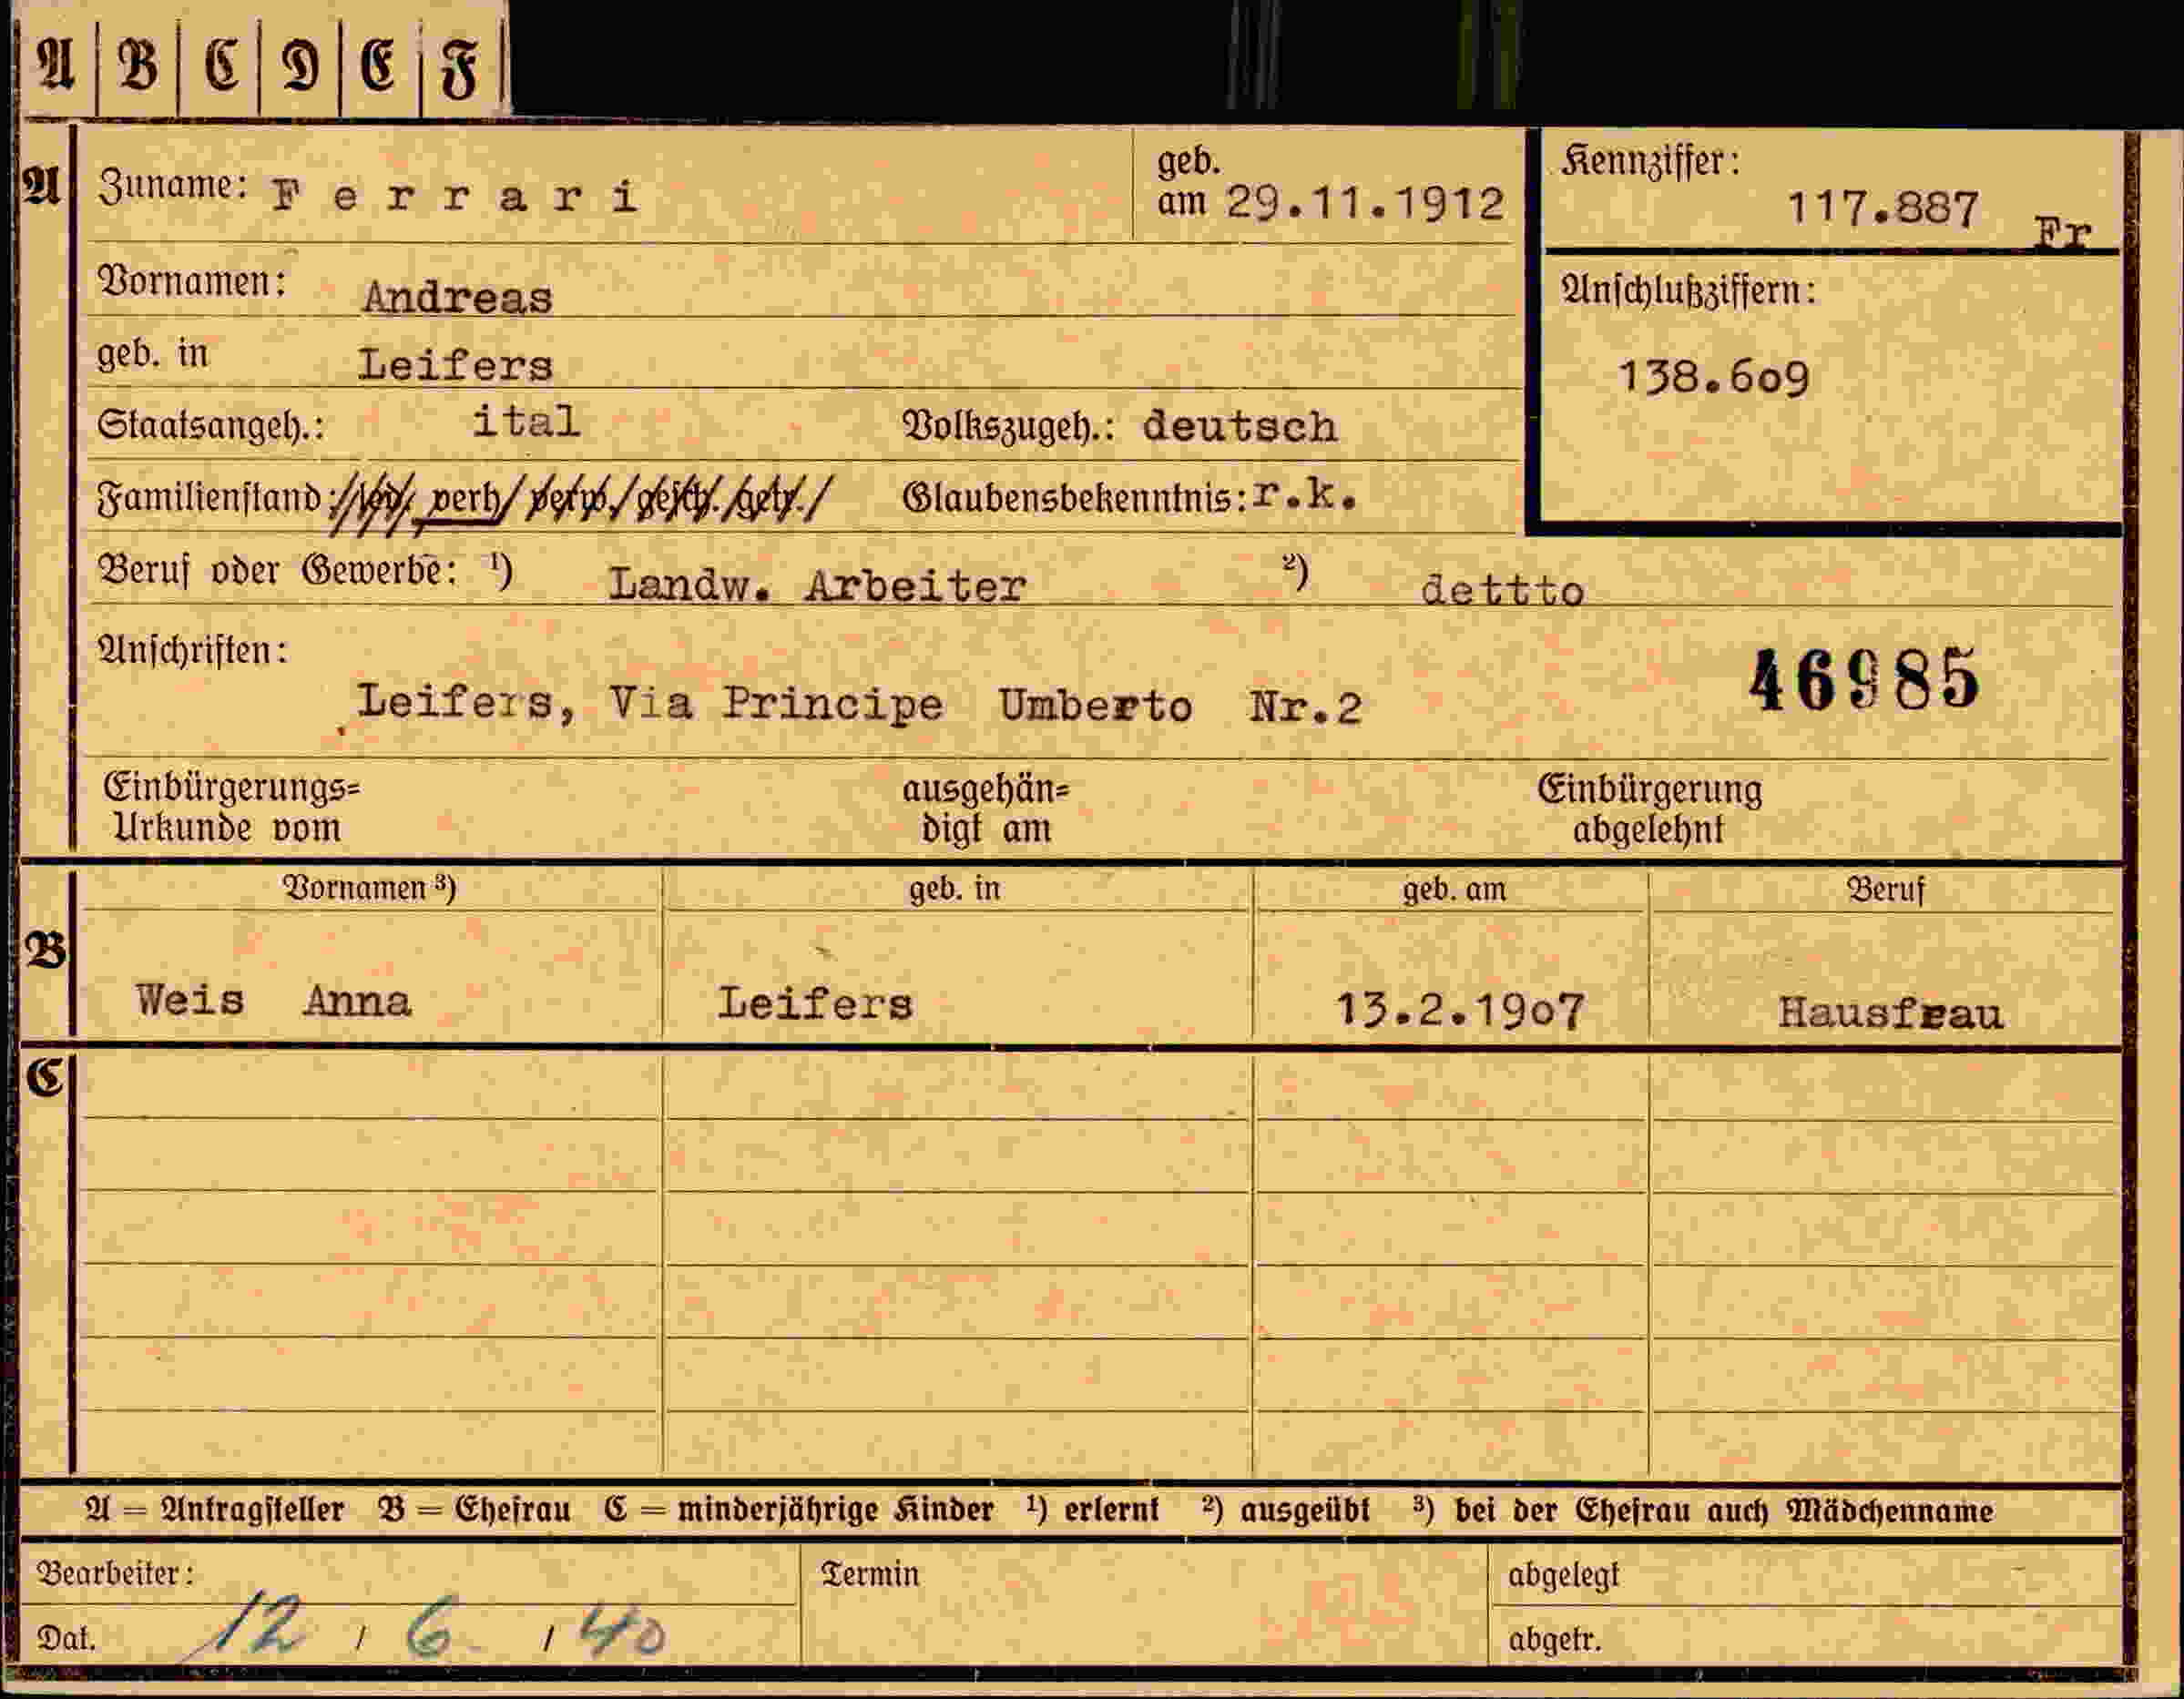 A B C D E F
A Zuname: Ferrari geb. am 29.11.1912
Kennziffer: 117.887 Fr
Vornamen: Andreas
Anschlußziffern:
geb. in Leifers
138.6o9
Staatsangeh.: ital Volkszugeh.: deutsch
Familienstand: led. verh. verw. gesch. getr. Glaubensbekenntnis: r.k.
Beruf oder Gewerbe: ¹) Landw. Arbeiter ²) dettto
Anschriften:
46985
Leifers, Via Principe Umberto Nr.2
Einbürgerungs= ausgehän= Einbürgerung
Urkunde vom digt am abgelehnt
Vornamen ³) geb. in geb. am Beruf
B
Weis Anna Leifers 13.2.19o7 Hausfrau
C
A = Antragsteller B = Ehefrau C = minderjährige Kinder ¹) erlernt ²) ausgeübt ³) bei der Ehefrau auch Mädchenname
Bearbeiter: Termin abgelegt
Dat. 12 / 6 / 40 abgetr.